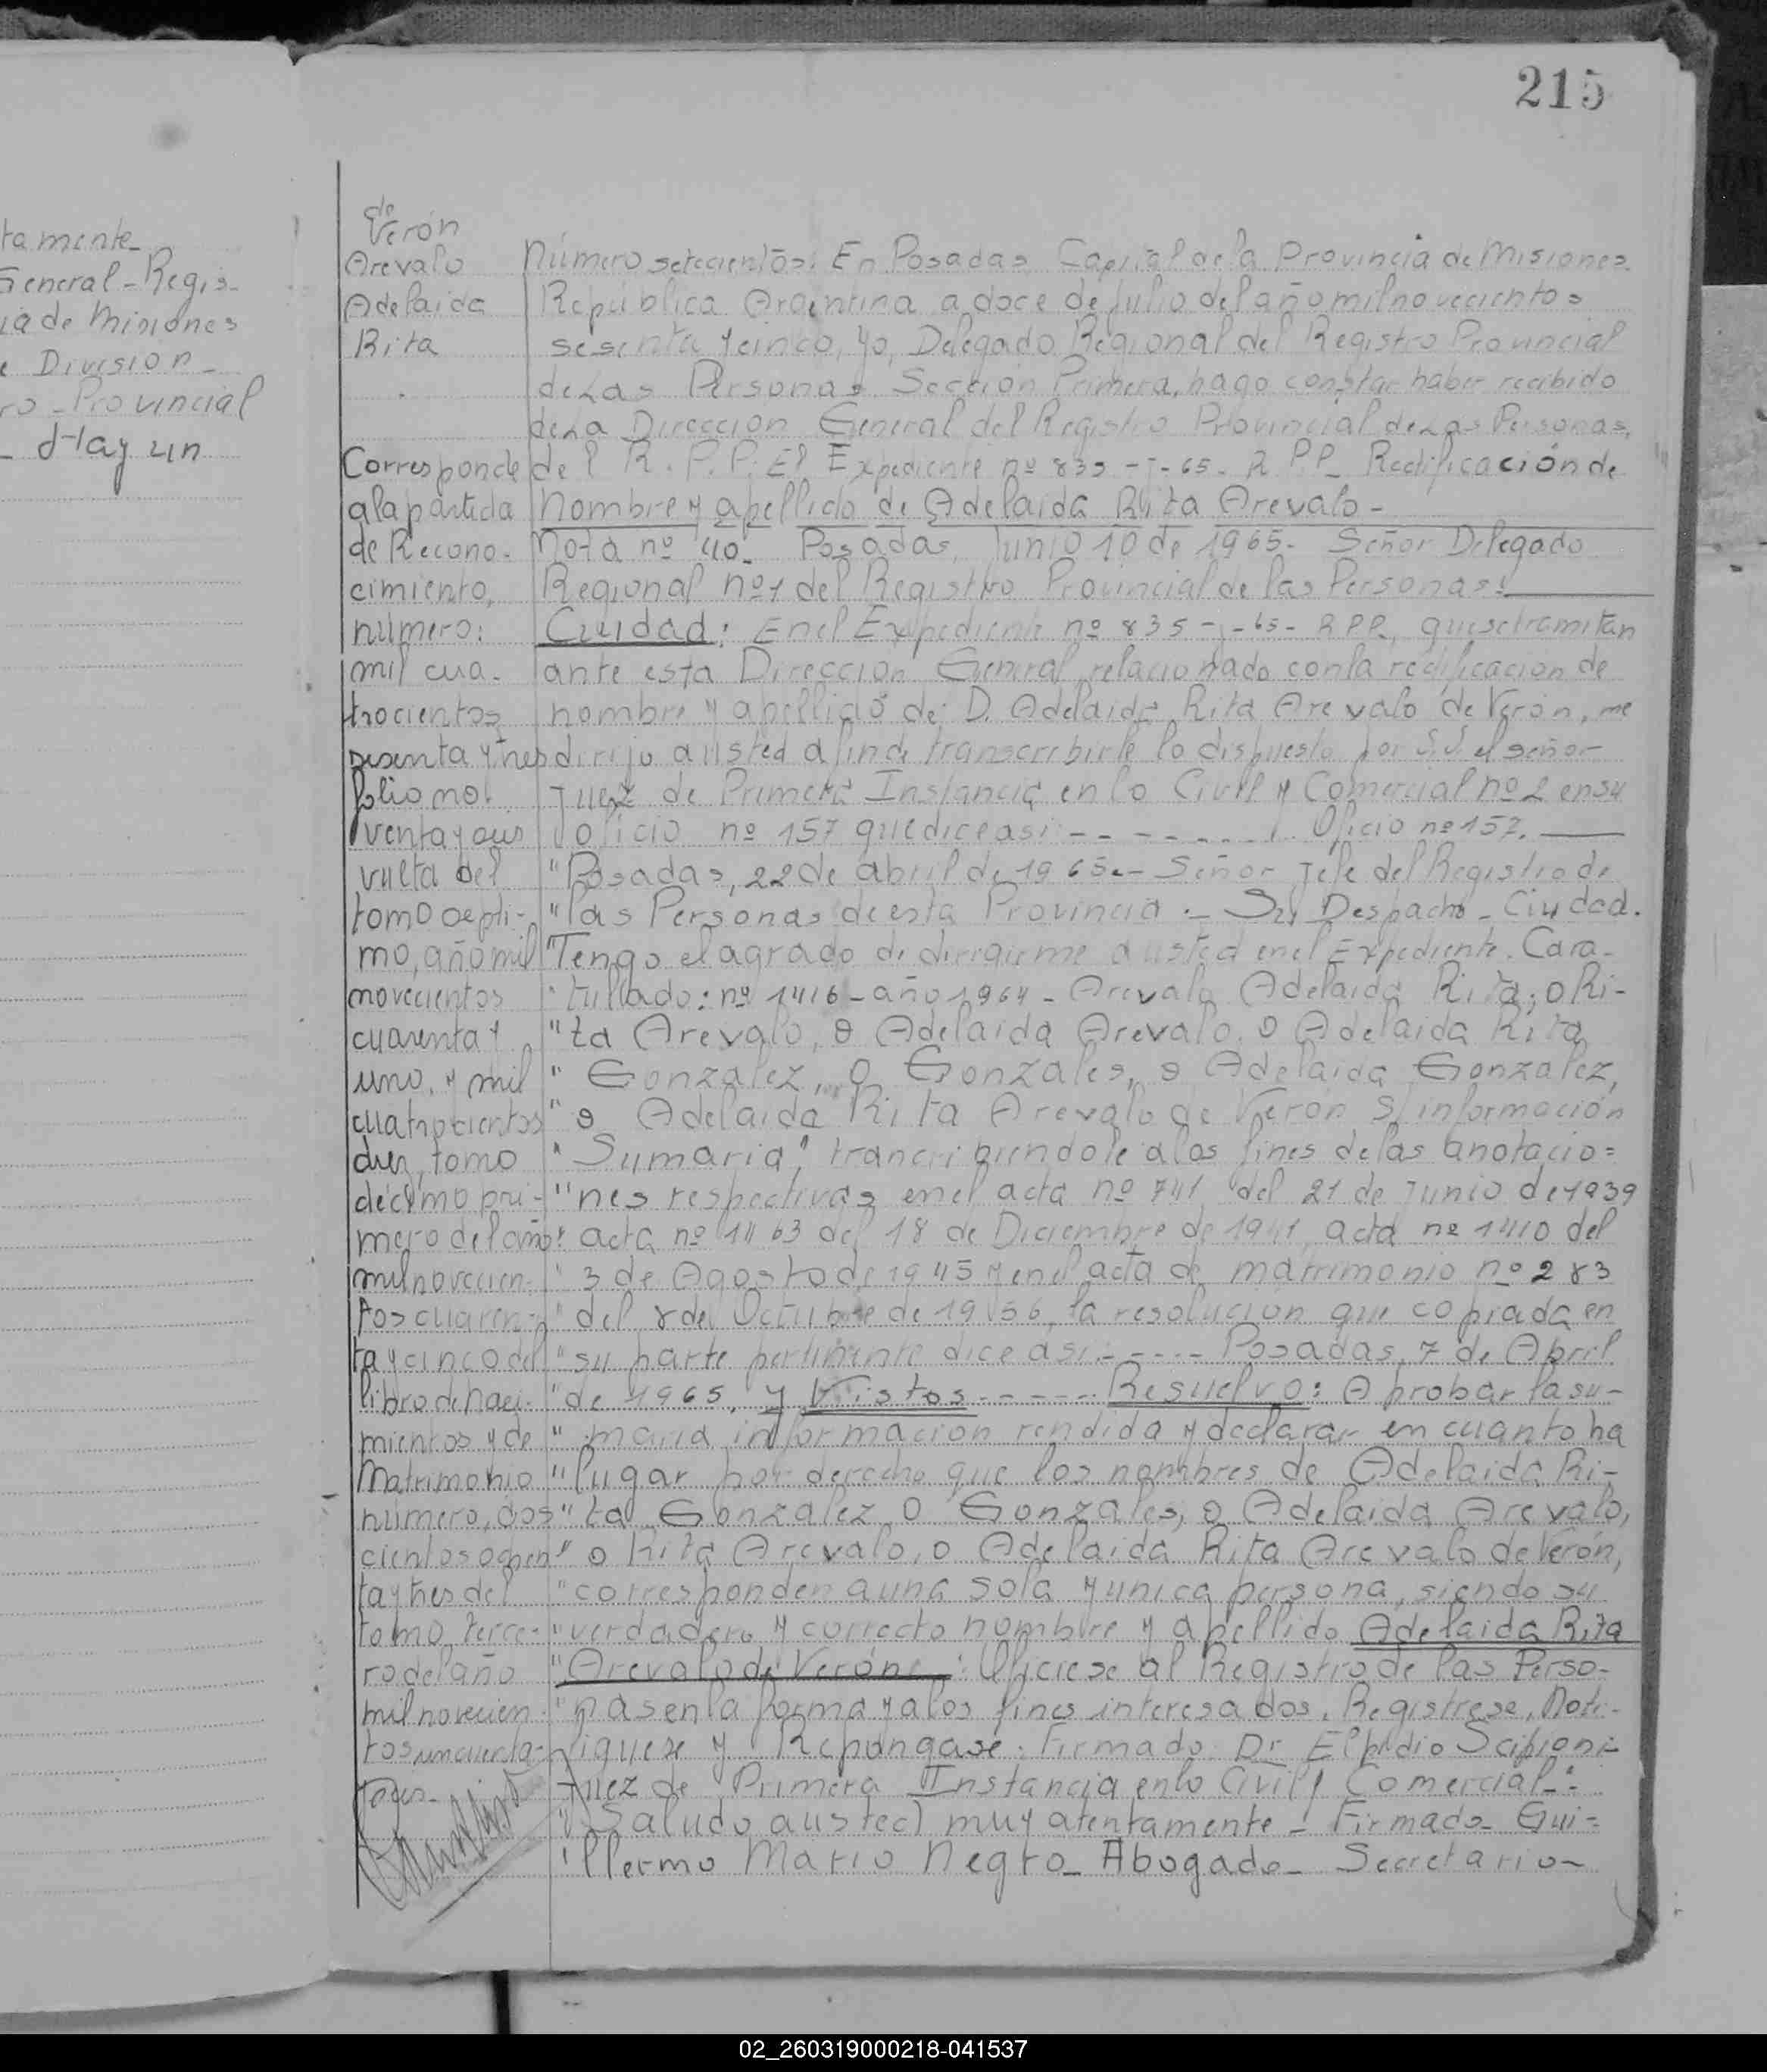 215
tamente_
General-Regis-
ia de Misiones
e Division_
ro-Provincial
_ Hay un
de
Verón
Arevalo
Adelaida
Rita
Corresponde
a la partida
de Recono-
cimiento,
número:
mil cua-
trocientos
sesenta y tres
folio no-
venta y seis
vuelta del
tomo septi-
mo, año mil
novecientos
cuarenta y
uno, y mil
cuatrocientos
diez, tomo
décimo pri-
mero del año
mil novecien-
tos cuaren-
ta y cinco del
libro de naci-
mientos y de
Matrimonio
número, dos
cientos ochen
ta y tres del
tomo, terce-
ro del año
mil novecien-
tos cincuenta
Número setecientos: En Posadas Capital de la Provincia de Misiones.
República Argentina a doce de Julio del año mil novecientos
sesenta y cinco, yo, Delegado Regional del Registro Provincial
de Las Personas Sección Primera, hago constar haber recibido
de La Dirección General del Registro Provincial de Las Personas,
del R.P.P. El Expediente nº 835-J-65- R.P.P_ Rectificación de
nombre y apellido de Adelaida Rita Arevalo-
Nota nº 40_ Posadas, Junio 10 de 1965- Señor Delegado
Regional nº1 del Registro Provincial de las Personas:
Ciudad: En el Expediente nº 835-J-65- R.P.P., que se tramitan
ante esta Dirección General, relacionado con la rectificación de
nombre y apellido de: D. Adelaida Rita Arevalo de Verón, me
dirijo a usted a fin de transcribirle lo dispuesto por S.S. el señor
Juez de Primera Instancia en lo Civil y Comercial nº 2 en su
oficio nº 157 que dice asi:-------- Oficio nº 157.
"Posadas, 22 de abril de 1965.- Señor Jefe del Registro de
"las Personas de esta Provincia._ Su Despacho_ Ciudad.
"Tengo el agrado de dirigirme a usted en el Expediente. Cara-
"tullado: nº 1416-año 1964- Arevalo Adelaida Rita; o Ri-
"ta Arevalo, o Adelaida Arevalo, o Adelaida Rita
" Gonzalez, o Gonzales, o Adelaida Gonzalez,
" o Adelaida Rita Arevalo de Veron S/información
" Sumaria", trancribiendole a los fines de las anotacio=
"nes respectivas en el acta nº 741 del 21 de Junio de 1939
" acta nº 1463 del 18 de Diciembre de 1941, acta nº 1410 del
" 3 de Agosto de 1945 y en el acta de matrimonio nº 283
" del 8 de Octubre de 1956, la resolución que copiada en
" su parte pertinente dice asi:----- Posadas, 7 de Abril
"de 1965. y Vistos------ Resuelvo: Aprobar la su-
" maria información rendida y declarar en cuanto ha
"lugar por derecho que los nombres de Adelaida Ri-
"ta Gonzalez o Gonzales, o Adelaida Arevalo,
" o Rita Arevalo, o Adelaida Rita Arevalo de Verón,
"corresponden a una sola y unica persona, siendo su
"verdadero y correcto nombre y apellido Adelaida Rita
"Arevalo de Verón: Oficiese al Registro de las Perso-
"nas en la forma y a los fines interesados. Registrese, Noti-
fiquese y Repongase. Firmado Dr Elpidio Scipioni-
Juez de Primera Instancia en lo Civil y Comercial-"
"Saludo a usted muy atentamente_ Firmado_ Gui=
"llermo Mario Negro_ Abogado_ Secretario-
02_260319000218-041537